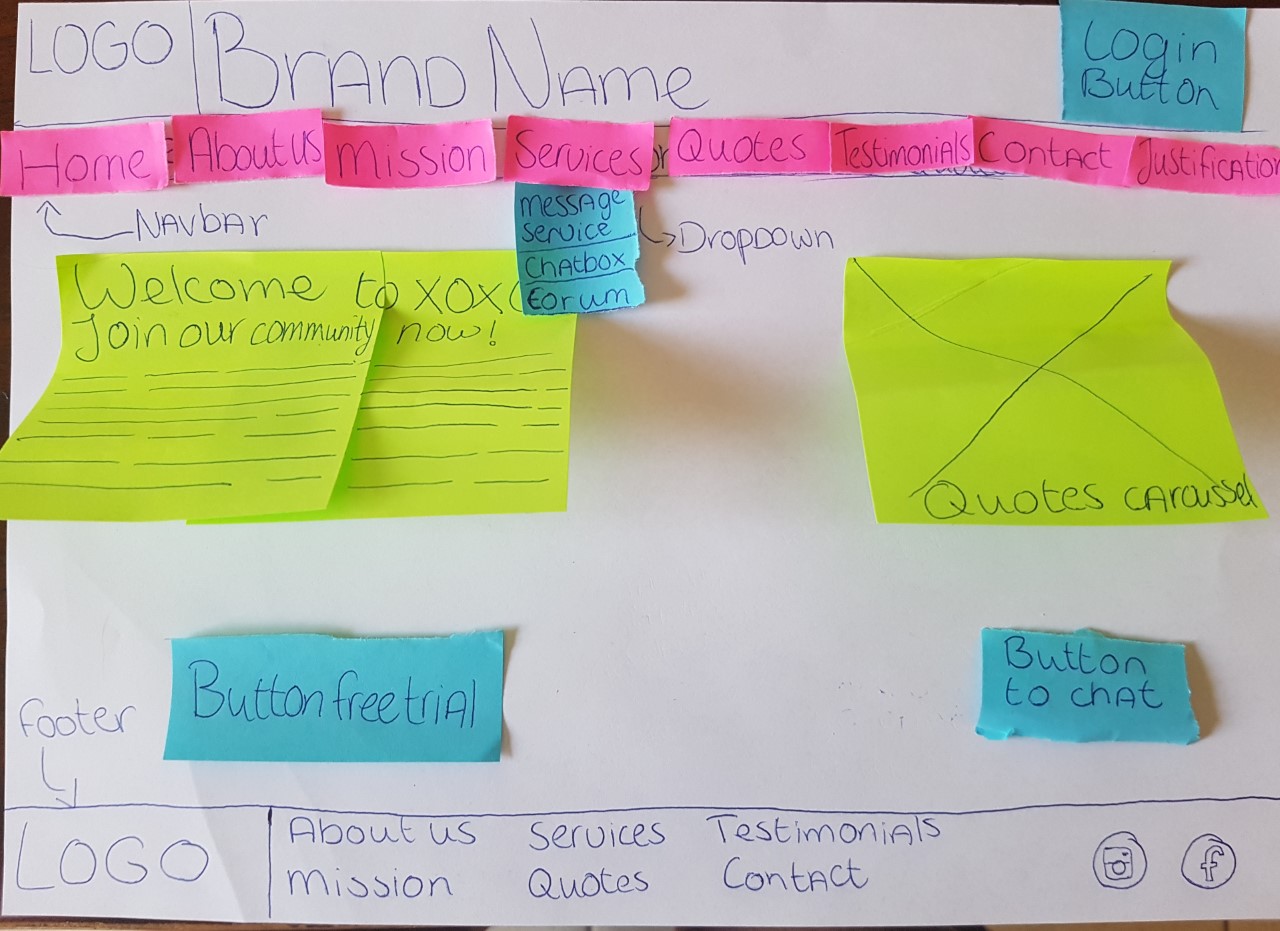 LOGO
Brand Name
Login
Button
Home
About us
Mission
Services
or
Quotes
Testimonials
Contact
Justification
Navbar
message
service
Chatbox
Forum
Dropdown
Welcome to xoxo
Join our community now!
Quotes caroussel
Button free trial
Button
to chat
footer
LOGO
About us
Services
Testimonials
Mission
Quotes
Contact
f